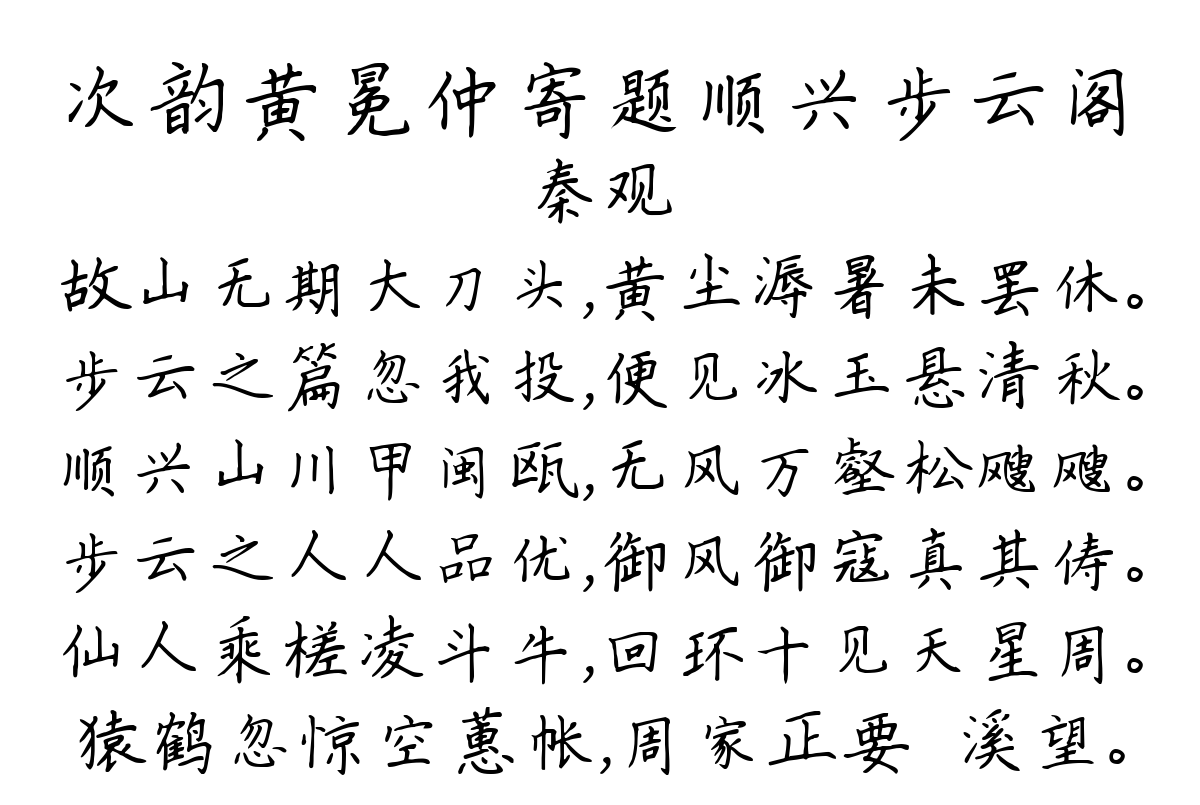 次韵黄冕仲寄题顺兴步云阁
秦观
故山无期大刀头,黄尘溽暑未罢休。
步云之篇忽我投,便见冰玉悬清秋。
顺兴山川甲闽瓯,无风万壑松飕飕。
步云之人人品优,御风御寇真其俦。
仙人乘槎凌斗牛,回环十见天星周。
猿鹤忽惊空蕙帐,周家正要 溪望。